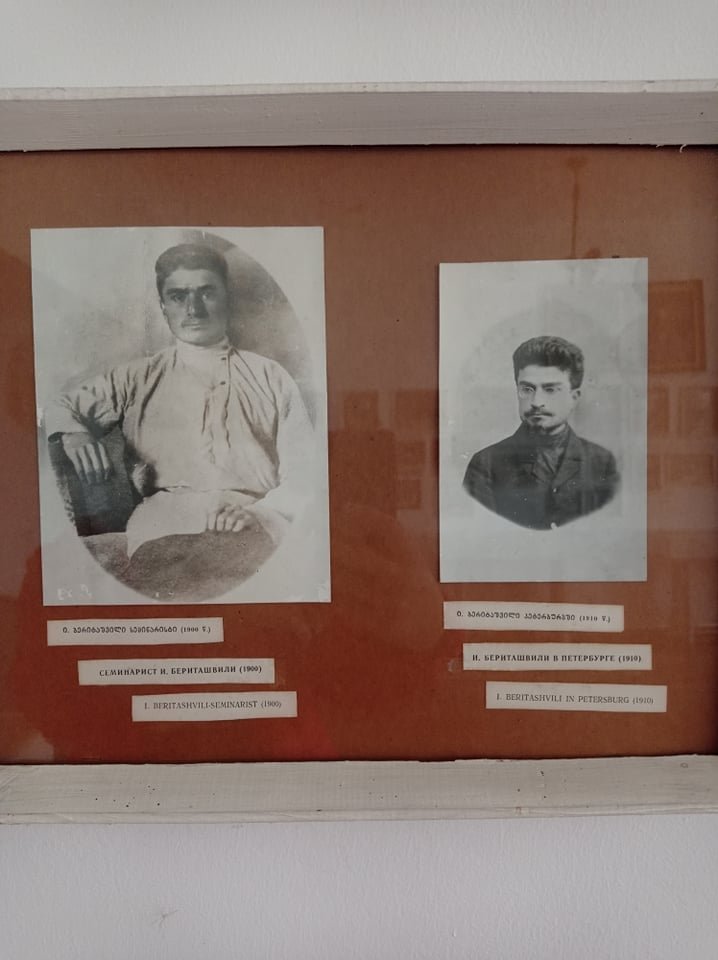 Ი. ᲑᲔᲠᲘᲢᲐᲨᲕᲘᲚᲘ ᲡᲔᲛᲘᲜᲐᲠᲘᲡᲢᲘ (1900 Წ.)
СЕМИНАРИСТ И. БЕРИТАШВИЛИ (1900)
I. BERITASHVILI-SEMINARIST (1900)
Ი. ᲑᲔᲠᲘᲢᲐᲨᲕᲘᲚᲘ ᲞᲔᲢᲔᲠᲑᲣᲠᲒᲨᲘ (1910 Წ.)
И. БЕРИТАШВИЛИ В ПЕТЕРБУРГЕ (1910)
I. BERITASHVILI IN PETERSBURG (1910)